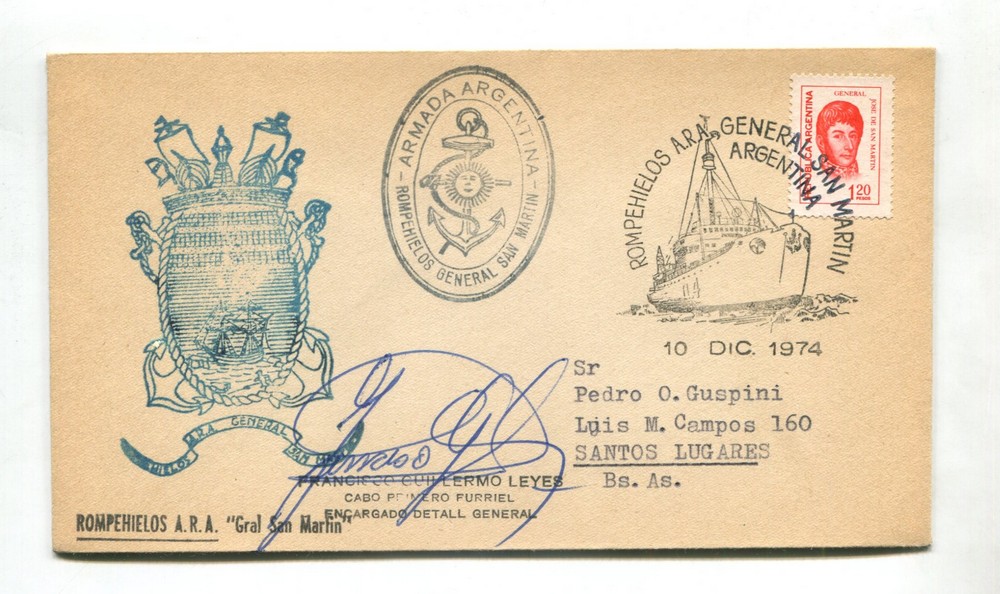 ARMADA ARGENTINA
ROMPEHIELOS GENERAL SAN MARTIN
ROMPEHIELOS A.R.A. GENERAL SAN MARTIN
ARGENTINA
10 DIC. 1974
GENERAL
JOSE DE SAN MARTIN
REPUBLICA ARGENTINA
1.20
PESOS
A.R.A. GENERAL
SAN
Sr
Pedro O. Guspini
Luis M. Campos 160
SANTOS LUGARES
Bs. As.
FRANCISCO GUILLERMO LEYES
CABO PRIMERO FURRIEL
ENCARGADO DETALL GENERAL
ROMPEHIELOS A.R.A. "Gral San Martin"